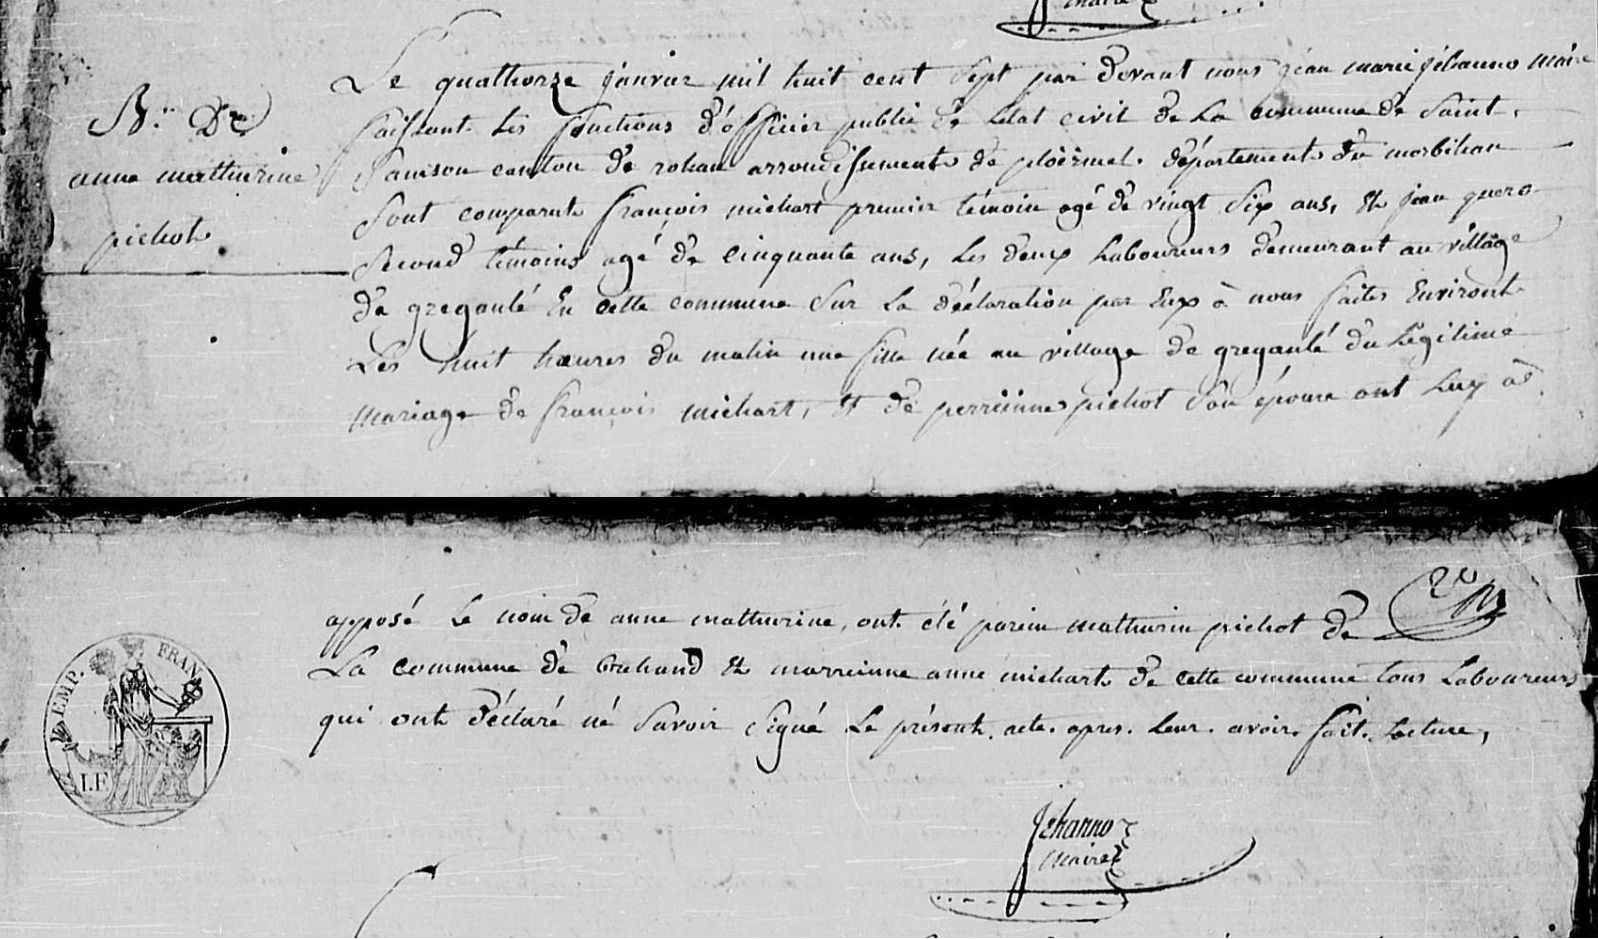 maire
Le quathorze janvier mil huit cent sept par devant nous jéan marie jéhanno maire
faissant les fonctions d'officier public de letat civil de La commune de Saint
Samson canton de rohan arrondissement de ploërmel. département du morbihan
Sont comparut françois michart premier témoin agé de vingt Six ans, et jean quero
Second témoins agé de cinquante ans, les deux Laboureurs demeurant au village
de greganté En cette commune Sur la déclaration par Eux à nous faites Environt
Les huit hœures du matin une fille née au village de greganté du Légitime
mariage de françois michart, et de perreinne pichot Son épouse ont Luy as
B. De
anne mathurine
pichot
apposé Le nom de anne mathurine, ont été parein mathurin pichot de
La commune de Brehand et marreinne anne michart de cette commune tous Laboureurs
qui ont déclaré né Savoir Signé Le présent acte apres Leur avoir fait Lecture,
EMP. FRAN
I.F
Jéhanno
maire